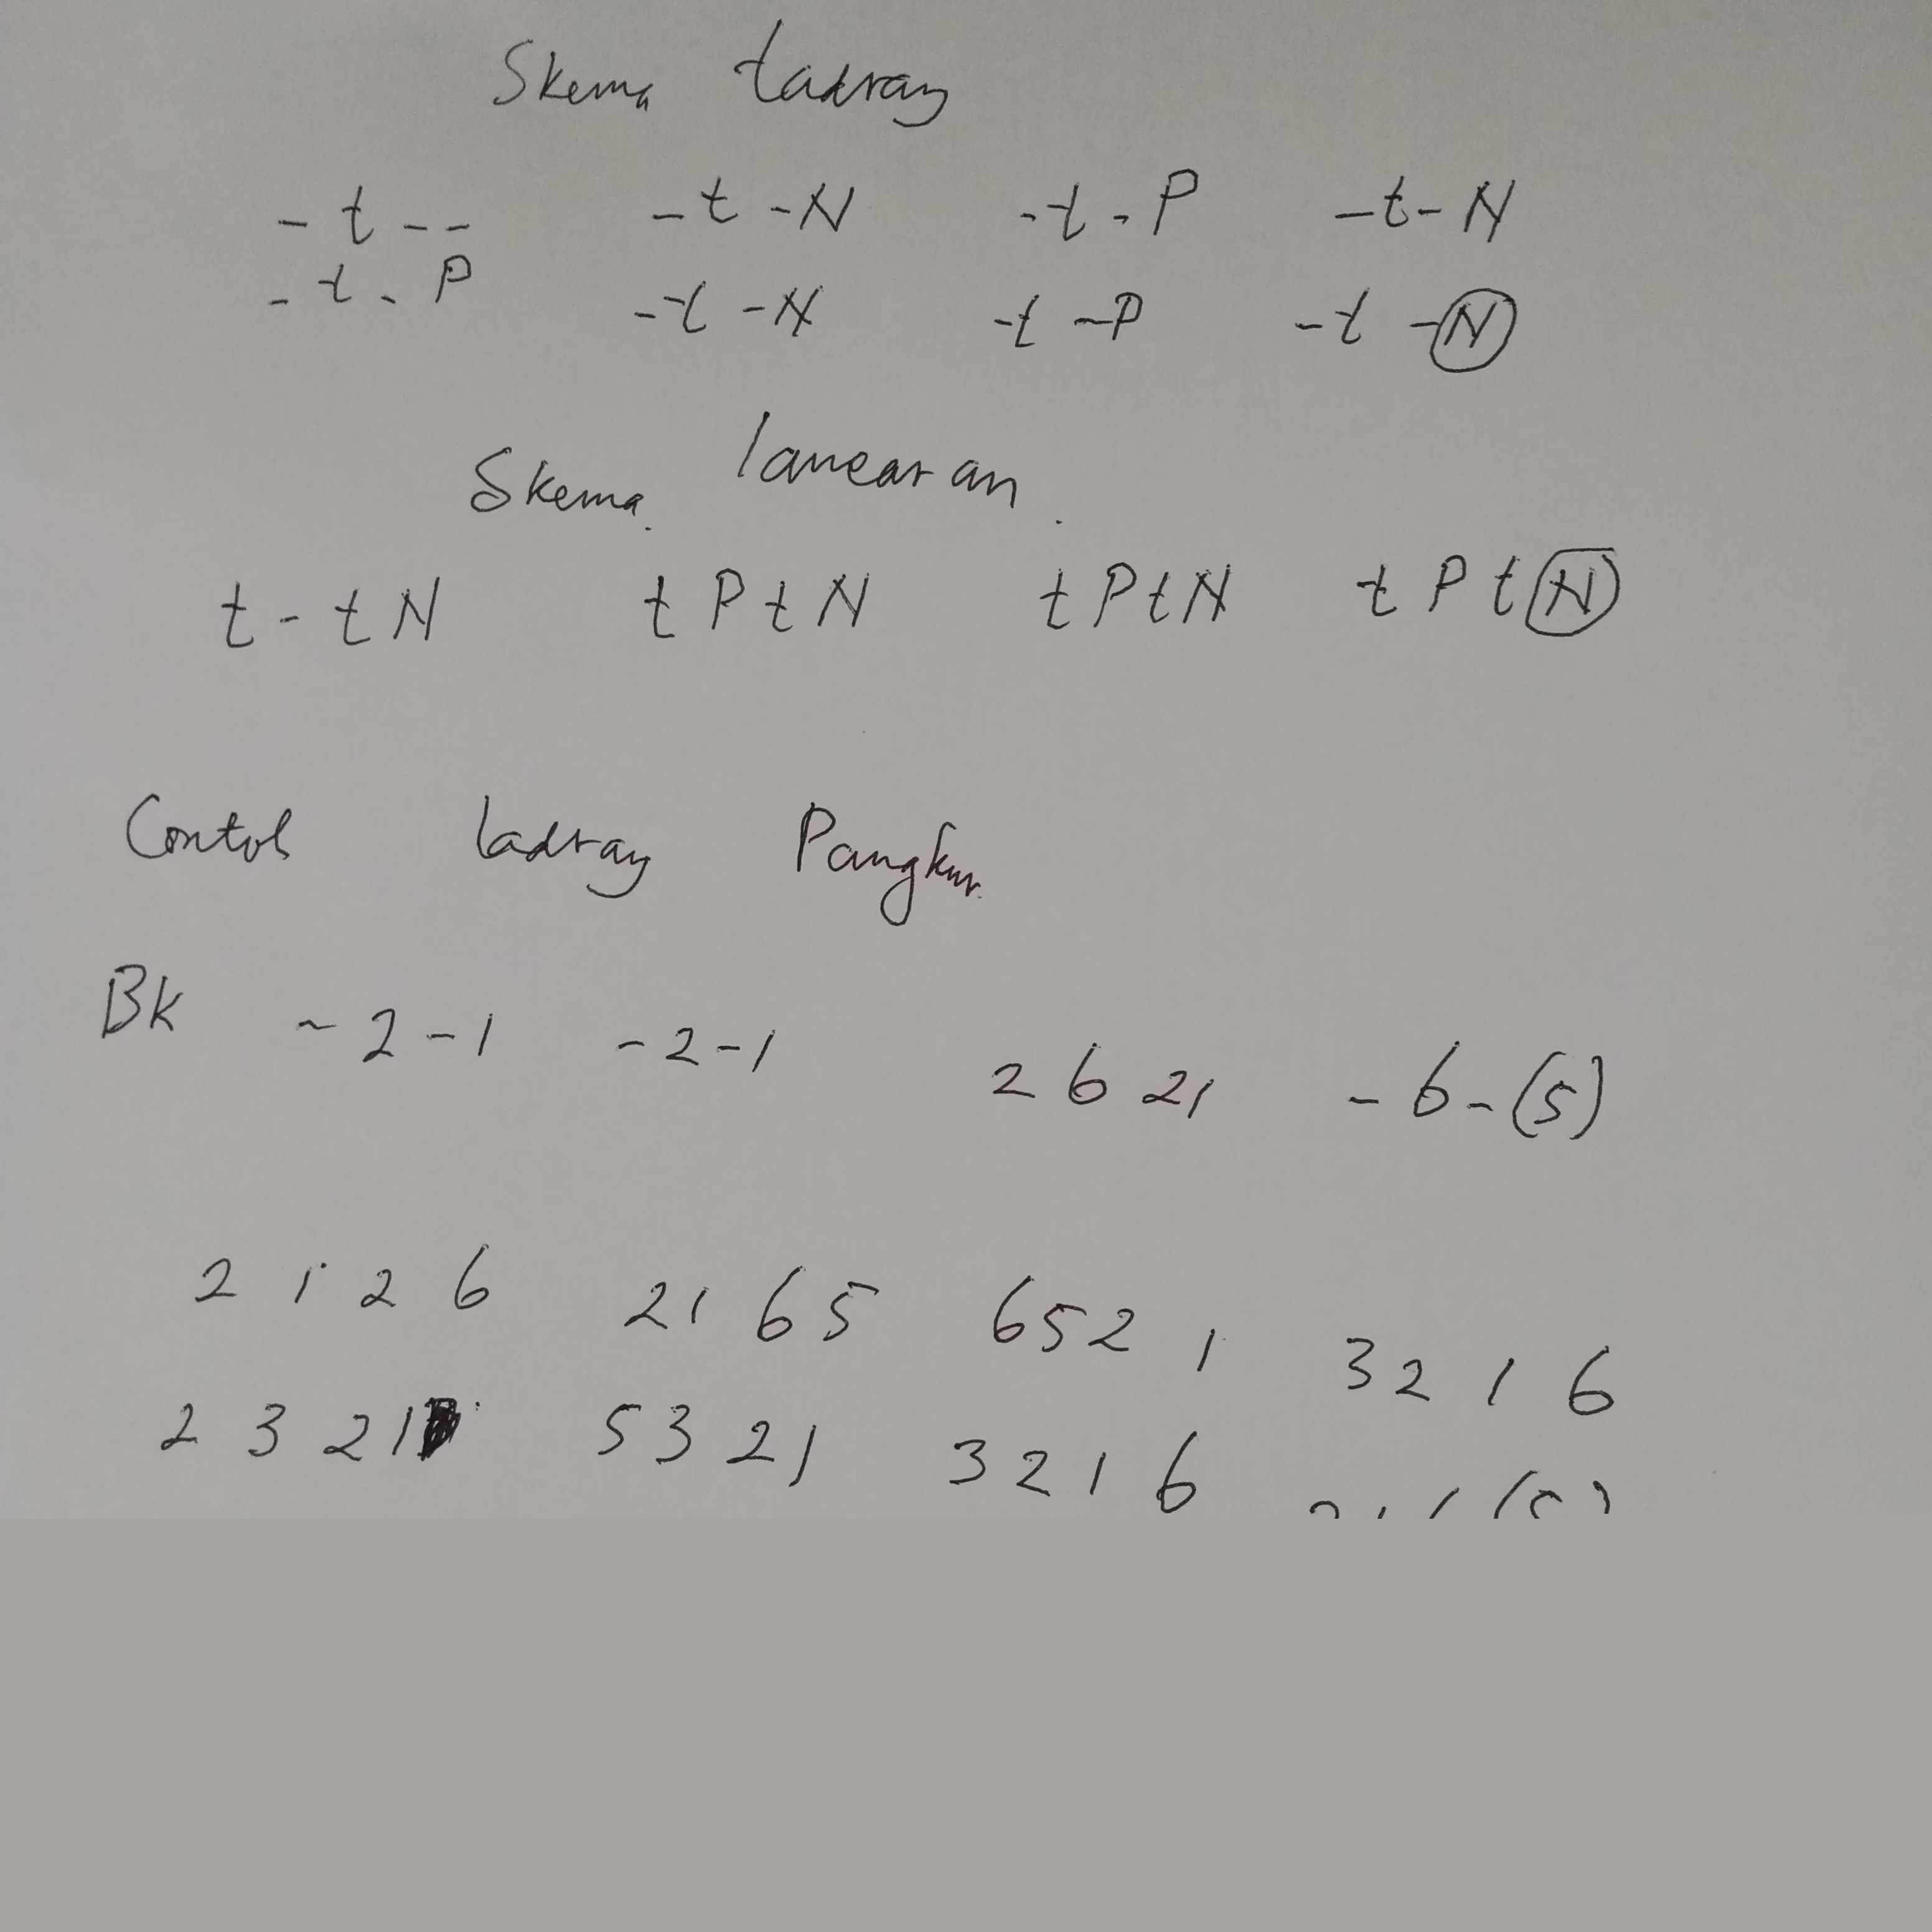 Skema ladrang
- t - - - t - N - t - P - t - N
- t - P - t - N - t - P - t - N
Skema lancaran
t - t N t P t N t P t N t P t N
Contoh ladrang Pangkur
BK - 2 - 1 - 2 - 1 2 6 2 1 - 6 - (5)
2 1 2 6 2 1 6 5 6 5 2 1 3 2 1 6
2 3 2 1 5 3 2 1 3 2 1 6